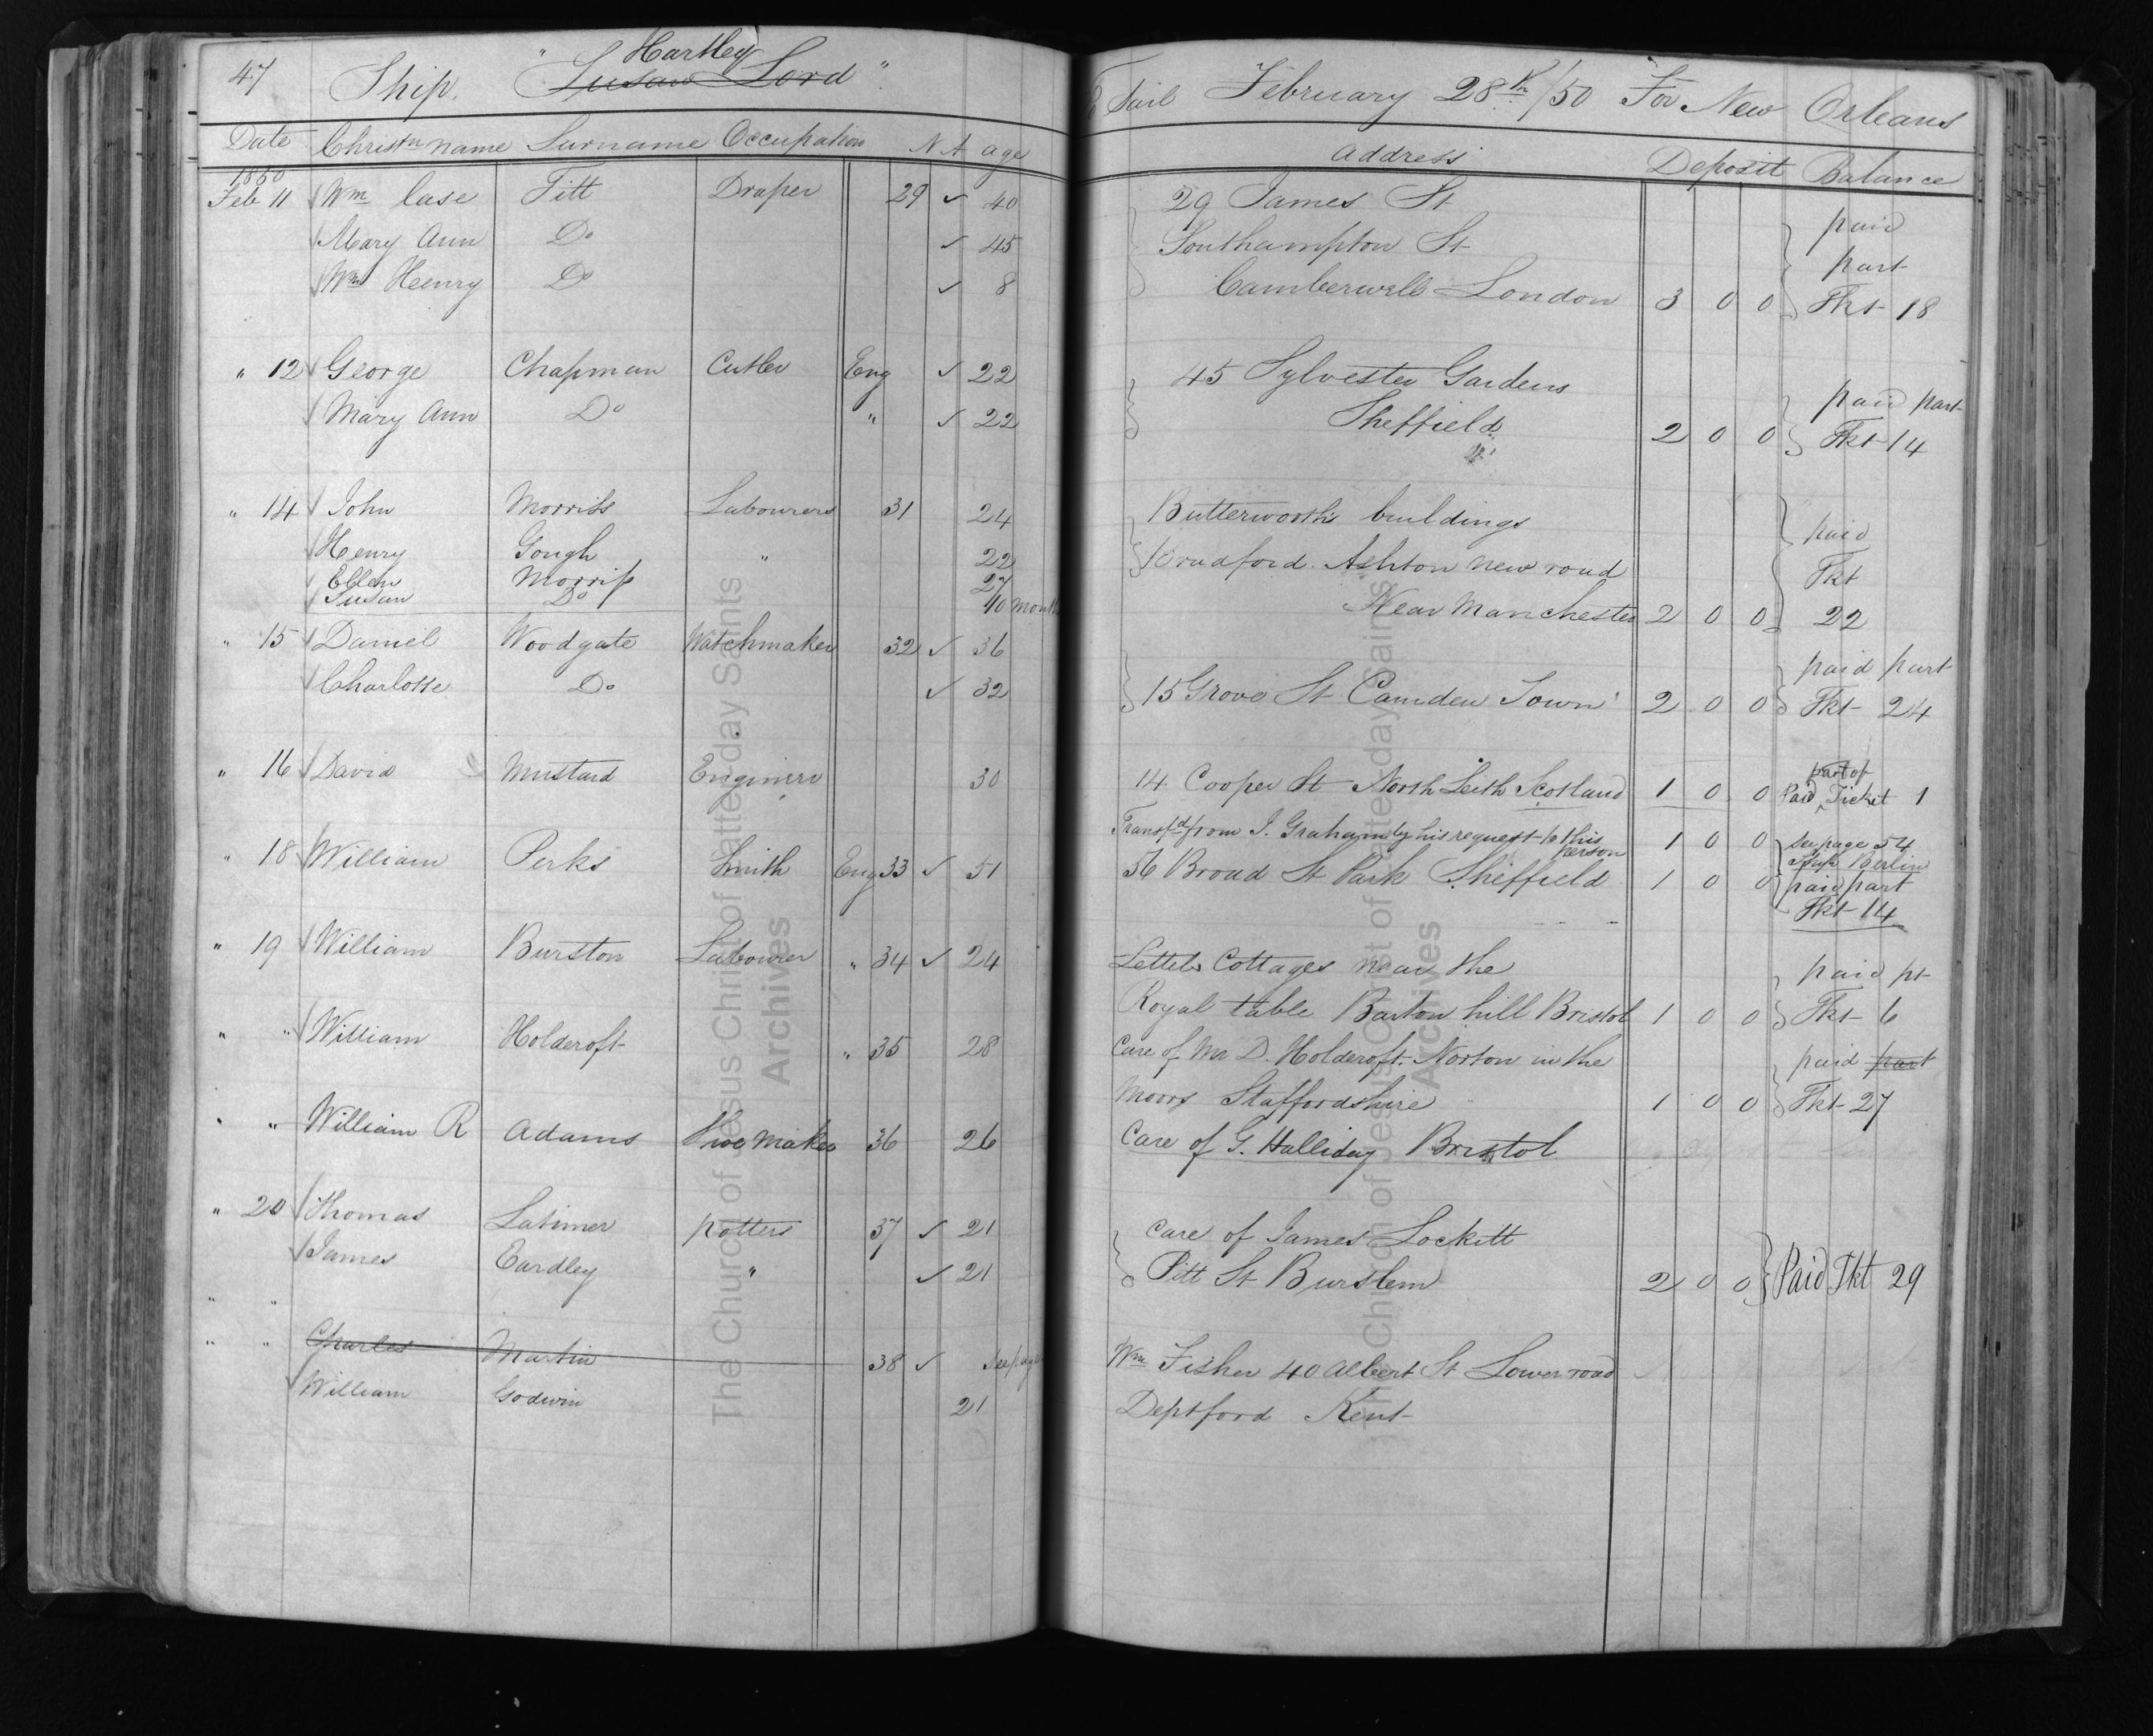 47 Ship. " Hartley "
Susan Lord
Date Christn name Surname Occupation N A age
1850
Feb 11 Wm Case Fitt Draper 29 ✓ 40
Mary Ann Do ✓ 45
Wm Henry Do ✓ 8
" 12 George Chapman Cutler Eng ✓ 22
Mary Ann Do " ✓ 22
" 14 John Morriss Labourers 31 24
Henry Gough " 22
Ellen Morriss 27
Susan Do 10 month
" 15 Daniel Woodgate Watchmaker 32 ✓ 36
Charlotte Do ✓ 32
" 16 David Mustard Engineer 30
" 18 William Perks Smith Eng 33 ✓ 51
" 19 William Burston Labourer " 34 ✓ 24
" " William Holdcroft " 35 28
" " William R Adams maker 36 26
" 20 Thomas Latimer potters 37 ✓ 21
James Eardley " ✓ 21
" "
" " Charles Martin 38 ✓ see page
William Godwin 21
Sail February 28th/50 For New Orleans
Address Deposit Balance
29 James St paid
Southampton St part
Camberwell London 3 0 0 Tkt 18
45 Sylvester Gardens paid part
Sheffield 2 0 0 Tkt 14
Butterworth's buildings paid
Bradford. Ashton new road Tkt
Near Manchester 2 0 0 22
paid part
15 Grove St Camden Town 2 0 0 Tkt 24
part of
14 Cooper St North Leith Scotland 1 0 0 Paid Ticket 1
Transfd from J. Graham by his request to this person 1 0 0 see page 54
Ship Berlin
56 Broad St Park Sheffield 1 0 0 paid part
Tkt 14
Cottages near the paid pt
Royal table Barton hill Bristol 1 0 0 Tkt 6
Care of Mr D. Holdcroft. Norton in the paid part
Moors Staffordshire 1 0 0 Tkt 27
Care of G. Halliday Bristol
Care of James Lockett
Pitt St Burslem 2 0 0 Paid Tkt 29
Wm Fisher 40 Albert St Lower road
Deptford Kent
The Church of Jesus Christ of Latter-day Saints
Archives
The Church of Jesus Christ of Latter-day Saints
Archives